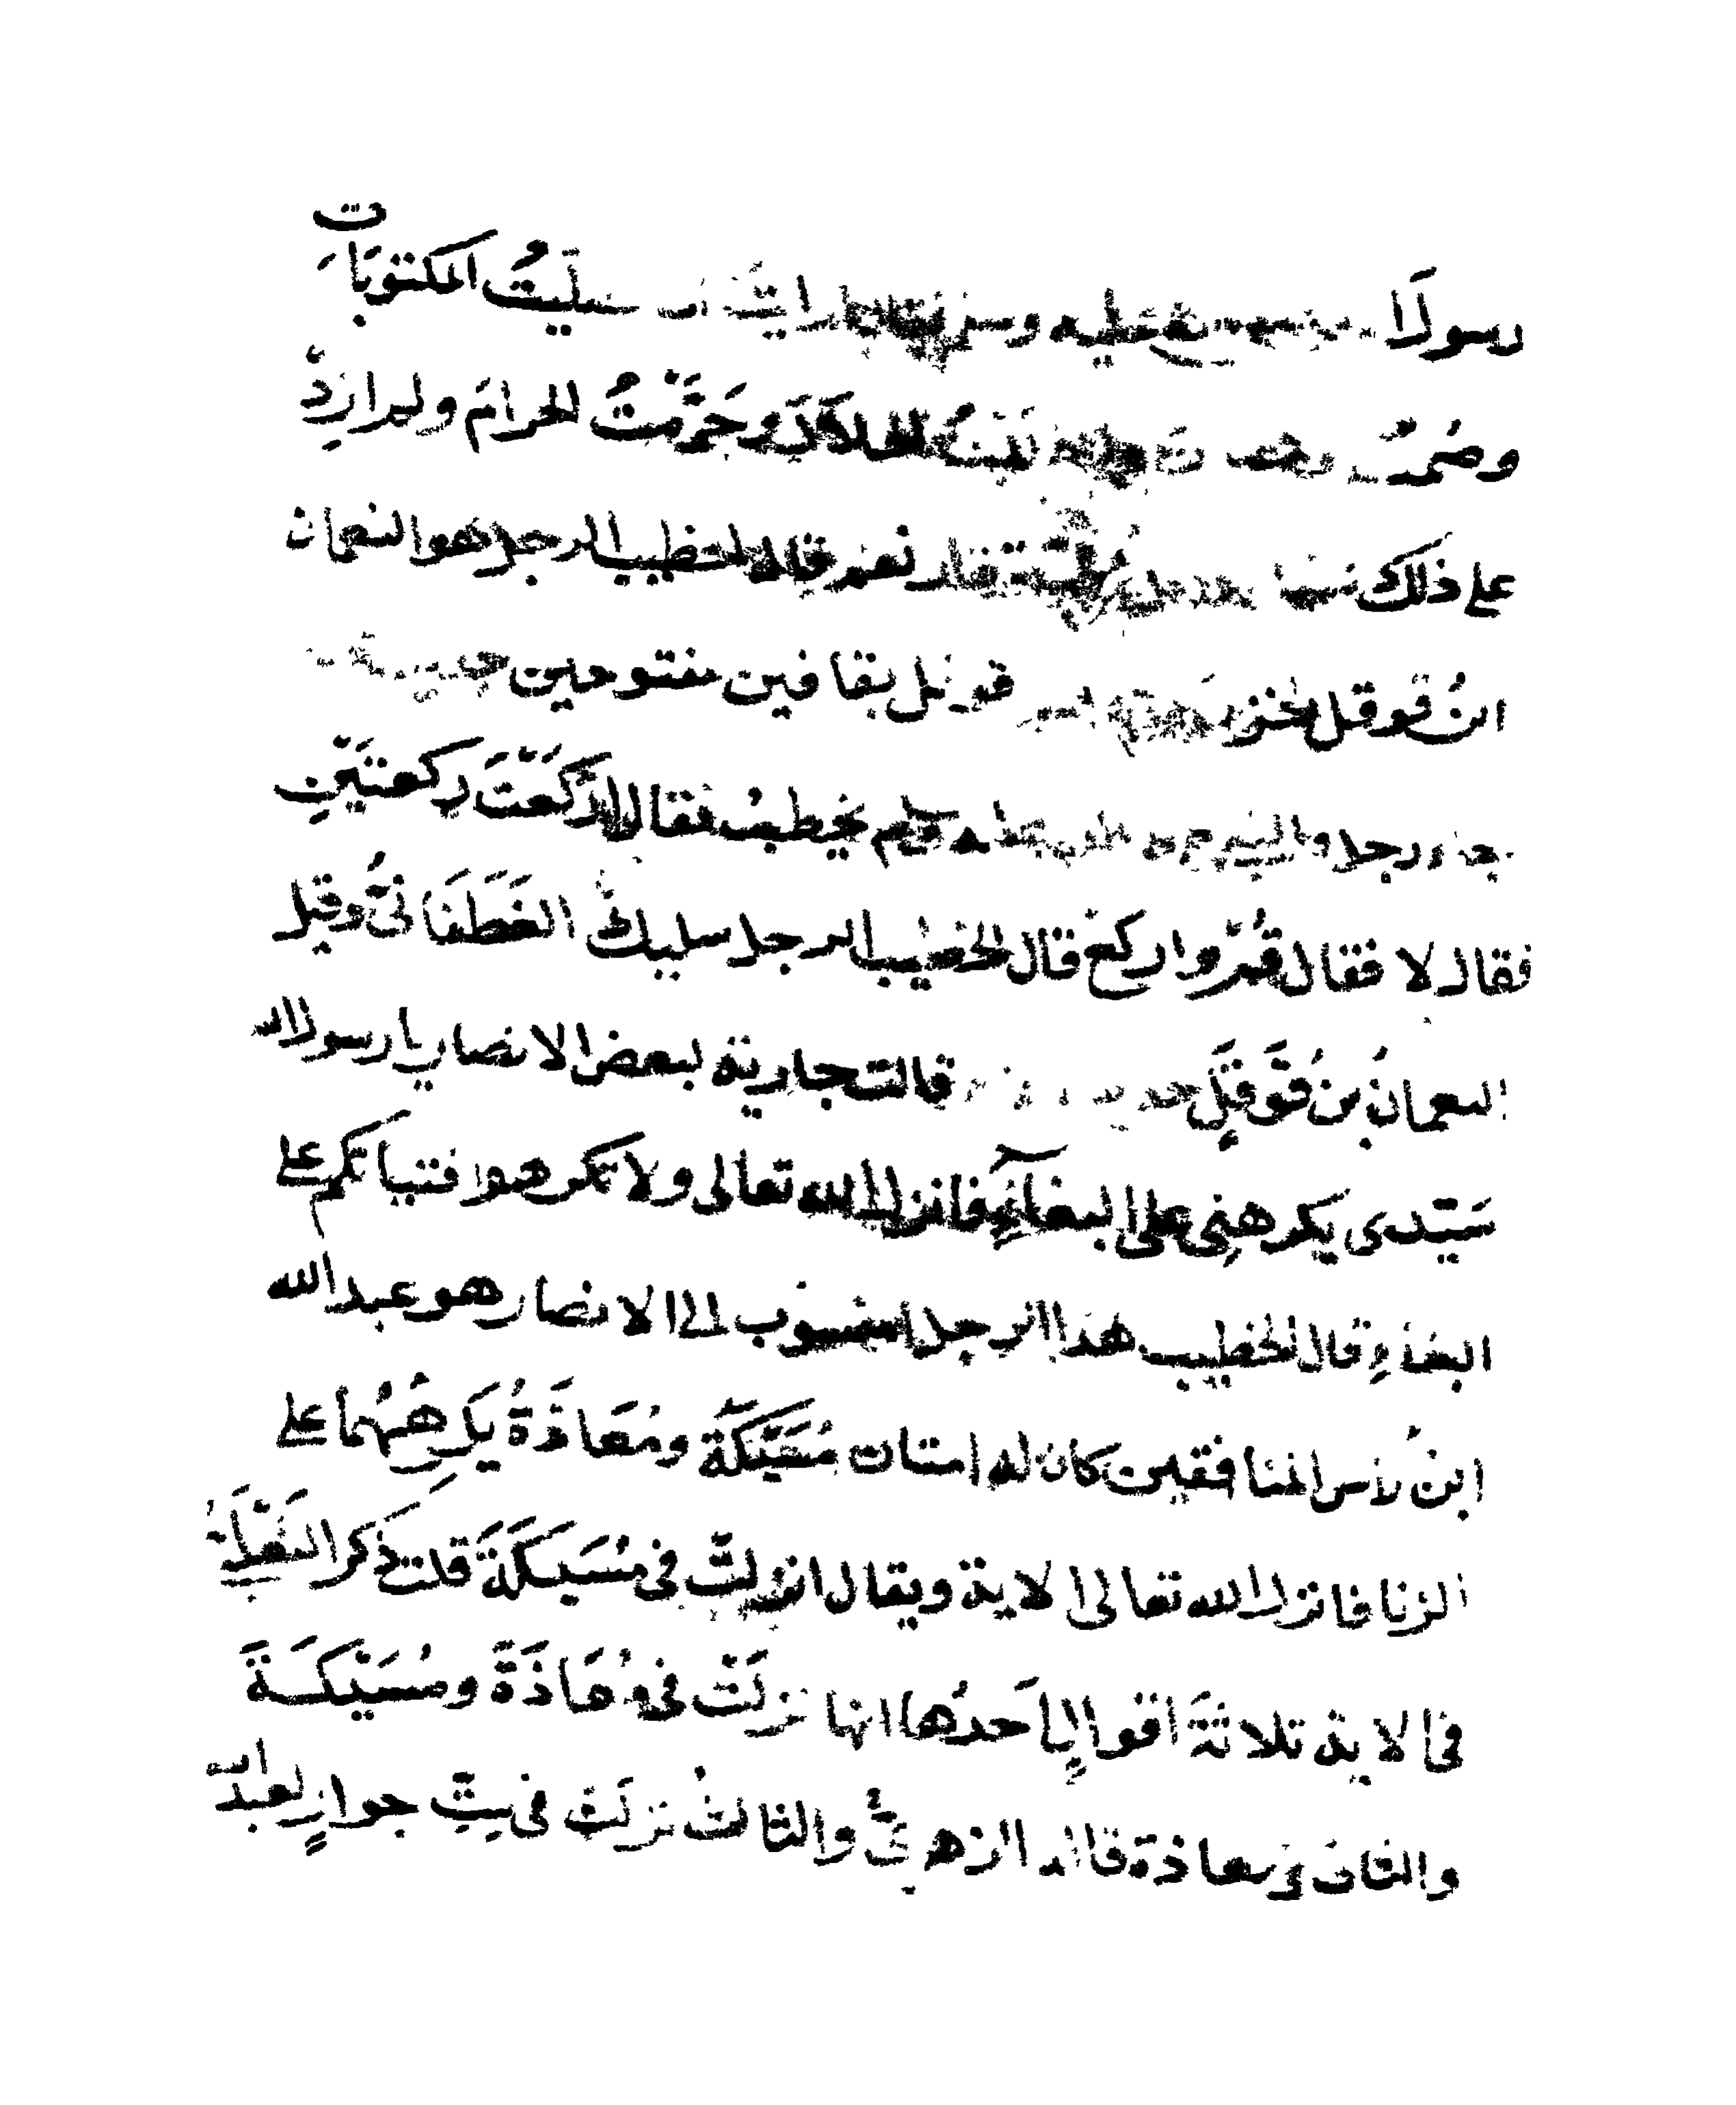 رسول الله عليه وسلم ارايت ان صليتُ المكتوبات
وصُمتُ الحلالَ وحَرَّمْتُ الحرامَ ولم ازِدْ
على ذلك شيئا الجنَّةَ فقال نعم قال الخطيب الرجل هو النعمان
ابنُ قَوقل الخزاعي قوقل بقافين مفتوحين حديث
جاء رجل والنبي صلى الله عليه وسلم يخطبُ فقال اركَعْتَ ركعتَيْنِ
فقال لا فقال قُمْ واركعْ قال الخطيب الرجل سليكُ الغَطَفَانىُّ وقيل
النعمانُ بنُ قَوقَلٍ حديث قالت جارية لبعض الانصار يا رسول الله
سَيّدى يكرهنِى على البغآءِ فانزل الله تعالى ولا تكرهوا فتياتكم على
البغاءِ قال الخطيب هذا الرجل المنسوب الى الانصار هو عبد الله
ابنُ راس المنافقين كان له امتان مُسَيْكَةُ ومُعَاذَةُ يكرِهُهُما على
الزنا فانزل الله تعالى الاية ويقال انزلتْ فى مُسَيكَةَ قلت ذكر النَقَلَةُ
فى الاية ثلاثةَ اقوالٍ اَحدُها انها نزلَتْ فى مُعَاذَةَ ومُسَيْكَةَ
والثانى فى معاذة قاله الزهرىُّ والثالثُ نزلَتْ فى سِتِّ جوارٍ لعبد الله